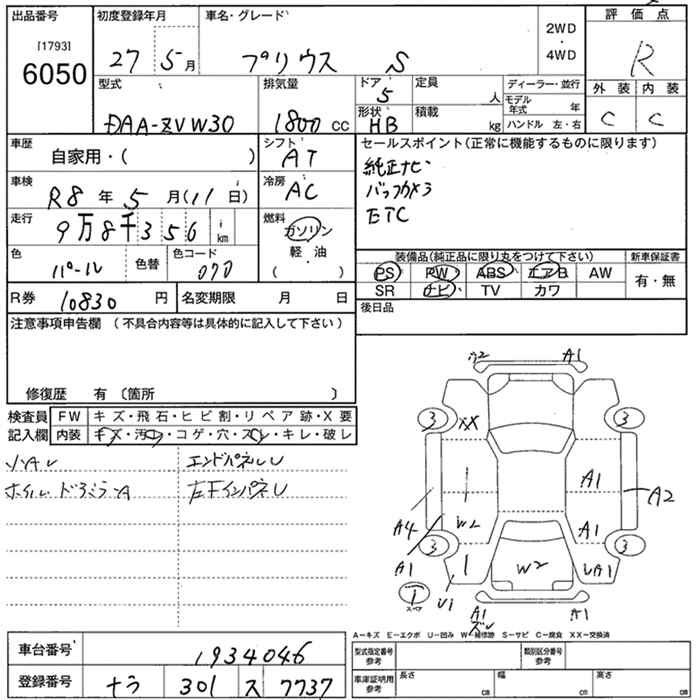 出品番号
[1793]
6050
初度登録年月
27 5月
車名・グレード
プリウス S
2WD
4WD
評価点
R
型式
DAA-ZVW30
排気量
1800 cc
ドア 5
形状 HB
定員 人
積載 kg
ディーラー・並行
モデル年式 年
ハンドル 左・右
外装 内装
C C
車歴
自家用・( )
シフト
AT
車検
R8年5月(11日)
冷房
AC
走行
9万8千356 km
燃料
ガソリン
軽・油
( )
色
パール
色替
色コード
070
R券 10830 円
名変期限 月 日
セールスポイント(正常に機能するものに限ります)
純正ナビ
バックカメラ
ETC
装備品(純正品に限り丸をつけて下さい)
PS PW ABS エアB AW
SR ナビ TV カワ
新車保証書
有・無
後日品
注意事項申告欄 (不具合内容等は具体的に記入して下さい)
修復歴 有 〔箇所 〕
検査員記入欄
FW キズ・飛石・ヒビ割・リペア跡・X要
内装 キズ・汚レ・コゲ・穴・スレ・キレ・破レ
エンドパネルU
ホイル ドアミラーA
左Fインパネ U
A2 A1
3 3
XX
A1
A2
A4
W2
A1
3 3
A1
W2
A1
U1
1
スペア
A1
A1
A-キズ E-エクボ U-凹み W-補修跡 S-サビ C-腐食 XX-交換済
車台番号 1934046
登録番号 ナラ 301 ス 7737
型式指定番号
参考
類別区分番号
参考
車庫証明用
参考
長さ cm
幅 cm
高さ cm